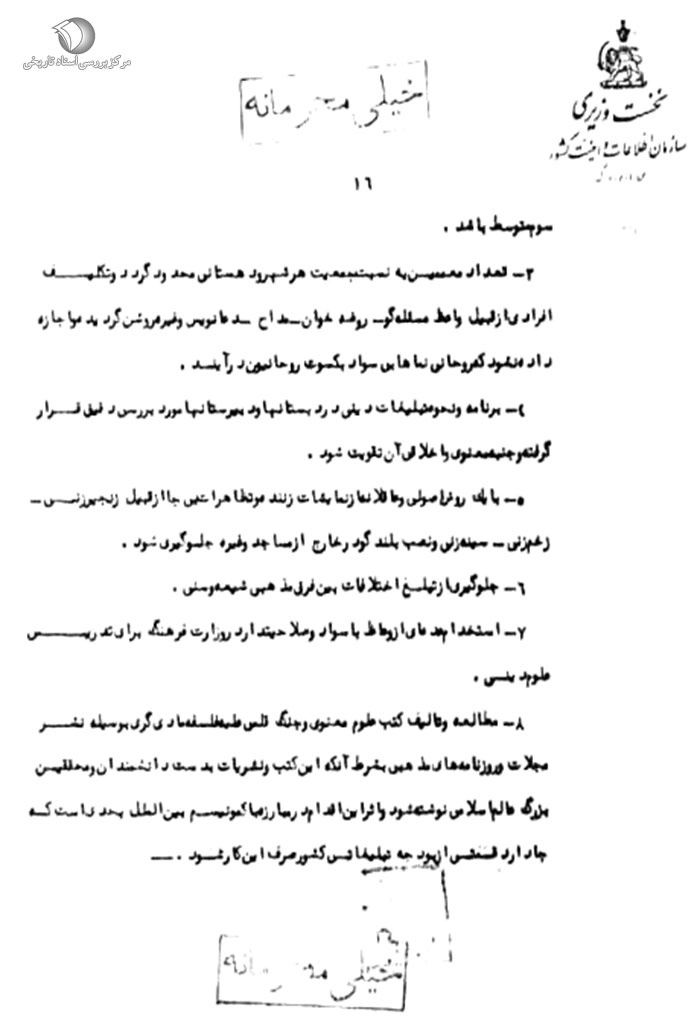 مرکز بررسی اسناد تاریخی
نخست وزیری
سازمان اطلاعات و امنیت کشور
خیلی محرمانه
۱۶
سوم متوسط باشد .
۳ـ تعداد معممین به نسبت جمعیت هر شهر و دهستانی محدود گردد و تکلیف
افرادی از قبیل واعظ مسئله گو ـ روضه خوان ـ مداح ـ دعانویس وغیره روشن گردیده و اجازه
داده نشود که روحانی نماهای بی سواد بکسوت روحانیون درآیند .
۴ـ برنامه ونحوه تبلیغات دینی در دبستانها ودبیرستانها مورد بررسی دقیق قرار
گرفته وجنبه معنوی واخلاقی آن تقویت شود .
۵ـ با یک روش اصولی وعاقلانه از نمایشات زننده وتظاهرات بی جا از قبیل زنجیرزنی ـ
زخم زنی ـ سینه زنی ونصب بلندگو در خارج از مساجد وغیره جلوگیری شود .
۶ـ جلوگیری از تبلیغ اختلافات بین فرق مذهبی شیعه وسنی .
۷ـ استخدام عده ای از وعاظ با سواد وصلاحیتدار در وزارت فرهنگ برای تدریس
علوم دینی .
۸ـ مطالعه وتالیف کتب علوم معنوی وجنگ قلمی علیه فلسفه مادی گری بوسیله نشر
مجلات وروزنامه های مذهبی بشرط آنکه این کتب ونشریات بدست دانشمندان ومحققین
بزرگ عالم اسلامی نوشته شود واثر این اقدام در مبارزه با کمونیسم بین الملل بحدی است که
جا دارد قسمتی از بودجه تبلیغاتی کشور صرف این کار شود .ـــ
خیلی محرمانه